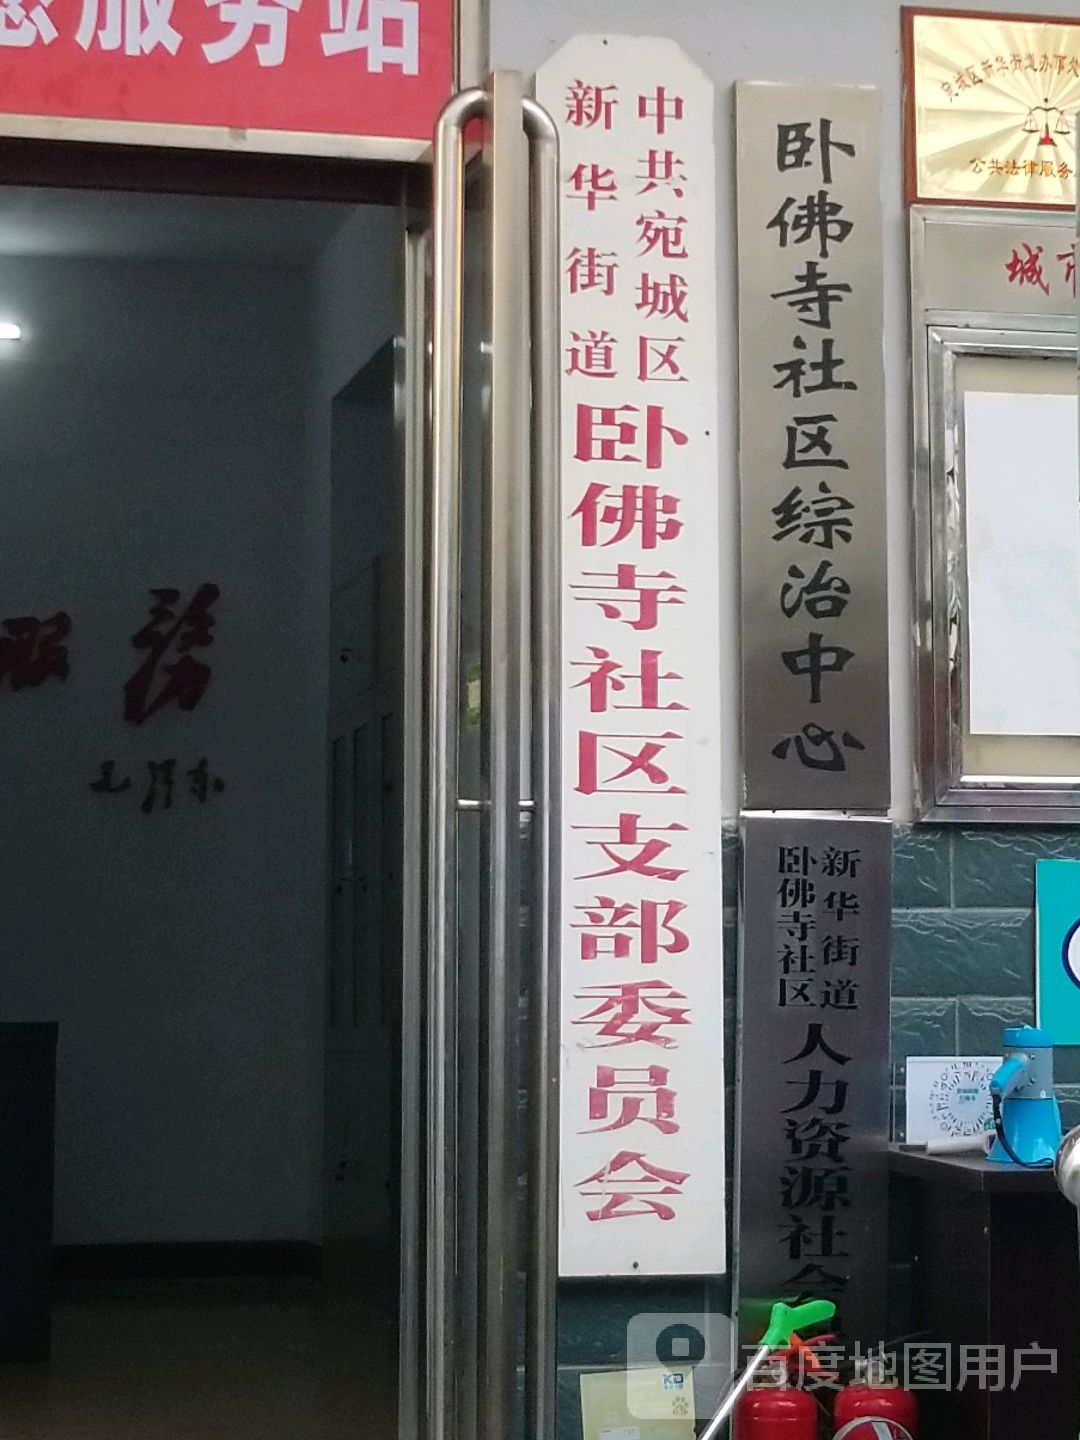 服务站
中共宛城区
新华街道
卧佛寺社区支部委员会
卧佛寺社区综治中心
新华街道
卧佛寺社区
人力资源社会
宛城区新华街道办事处
公共法律服务
城市
服务
毛泽东
百度地图用户